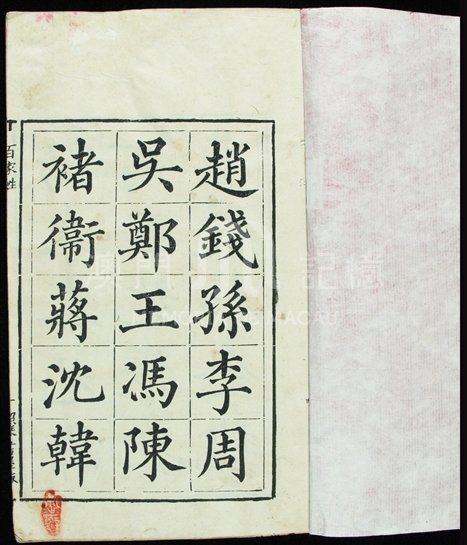 趙錢孫李周
吳鄭王馮陳
褚衞蔣沈韓
百家姓